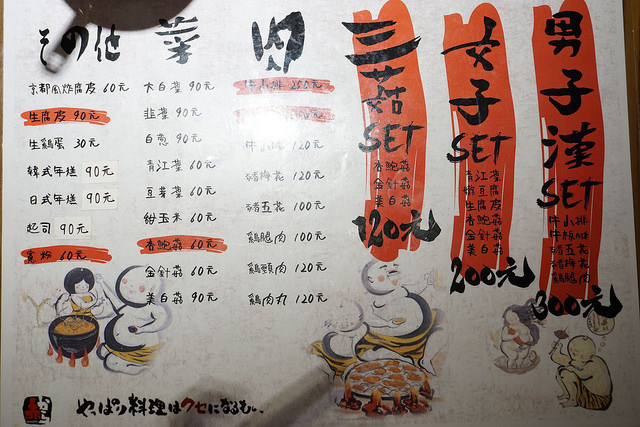 その他
京都風炸腐皮 60元
生腐皮 90元
生鷄蛋 30元
韓式年糕 90元
日式年糕 90元
起司 90元
寬粉 60元
菜
大白菜 90元
韭菜 90元
白蔥 90元
青江菜 60元
豆芽菜 60元
甜玉米 60元
杏鮑菇 60元
金針菇 60元
美白菇 90元
肉
牛小排 250元
120元
豬梅花 120元
豬五花 100元
鷄腿肉 100元
鷄頸肉 120元
鷄肉丸 120元
三菇
SET
杏鮑菇
金針菇
美白菇
120元
女子
SET
青江菜
嫩豆腐
生腐皮
杏鮑菇
金針菇
美白菇
200元
男子漢
SET
牛小排
牛板腱
豬五花
豬梅花
鷄腿肉
300元
やっぱり料理はクセになるもん